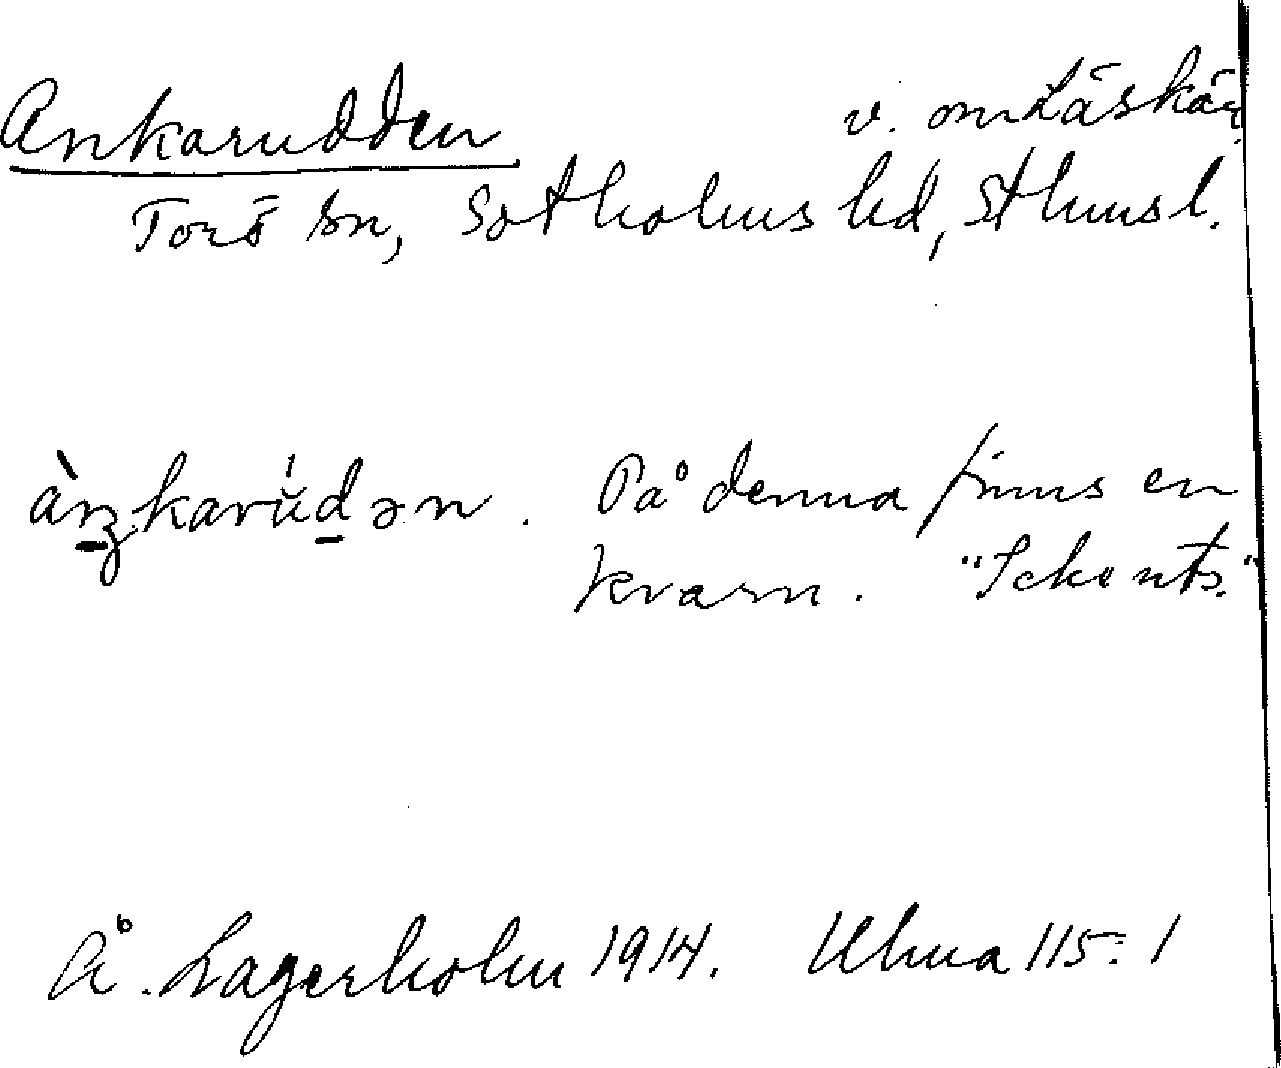 Ankarudden v. om Läskär
Torö sn, Sotholms hd, Sthmsl.
àŋkarúdən. På denna finns en
kvarn.
Å. Lagerholm 1914. Ulma 115:1